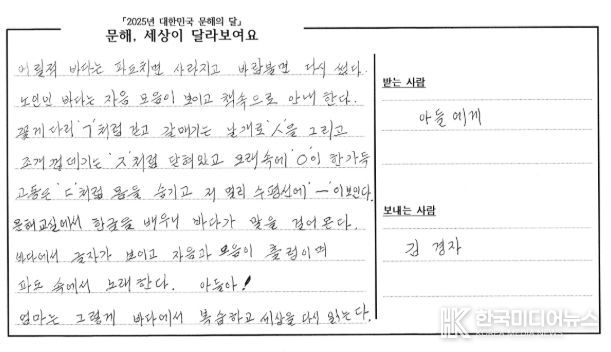 「2025년 대한민국 문해의 달」
문해, 세상이 달라보여요
어릴적 바다는 파도치면 사라지고 바람불면 다시 썼다.
노인인 바다는 자음 모음이 보이고 책속으로 안내 한다.
꽃게다리 'ㄱ'처럼 걷고 갈매기는 날개로 'ㅅ'을 그리고
조개껍데기는 'ㅈ'처럼 닫혀있고 모래속에 'ㅇ'이 한가득
고동은 'ㄷ'처럼 몸을 숨기고 저 멀리 수평선에 'ㅡ'이보인다.
문해교실에서 한글을 배우니 바다가 말을 걸어 온다.
바다에서 글자가 보이고 자음과 모음이 출렁이며
파도 속에서 노래한다. 아들아!
엄마는 그렇게 바다에서 복습하고 세상을 다시 읽는다.
받는 사람
아들에게
보내는 사람
김 경자
HK 한국미디어뉴스
KOREA MEDIA NEWS